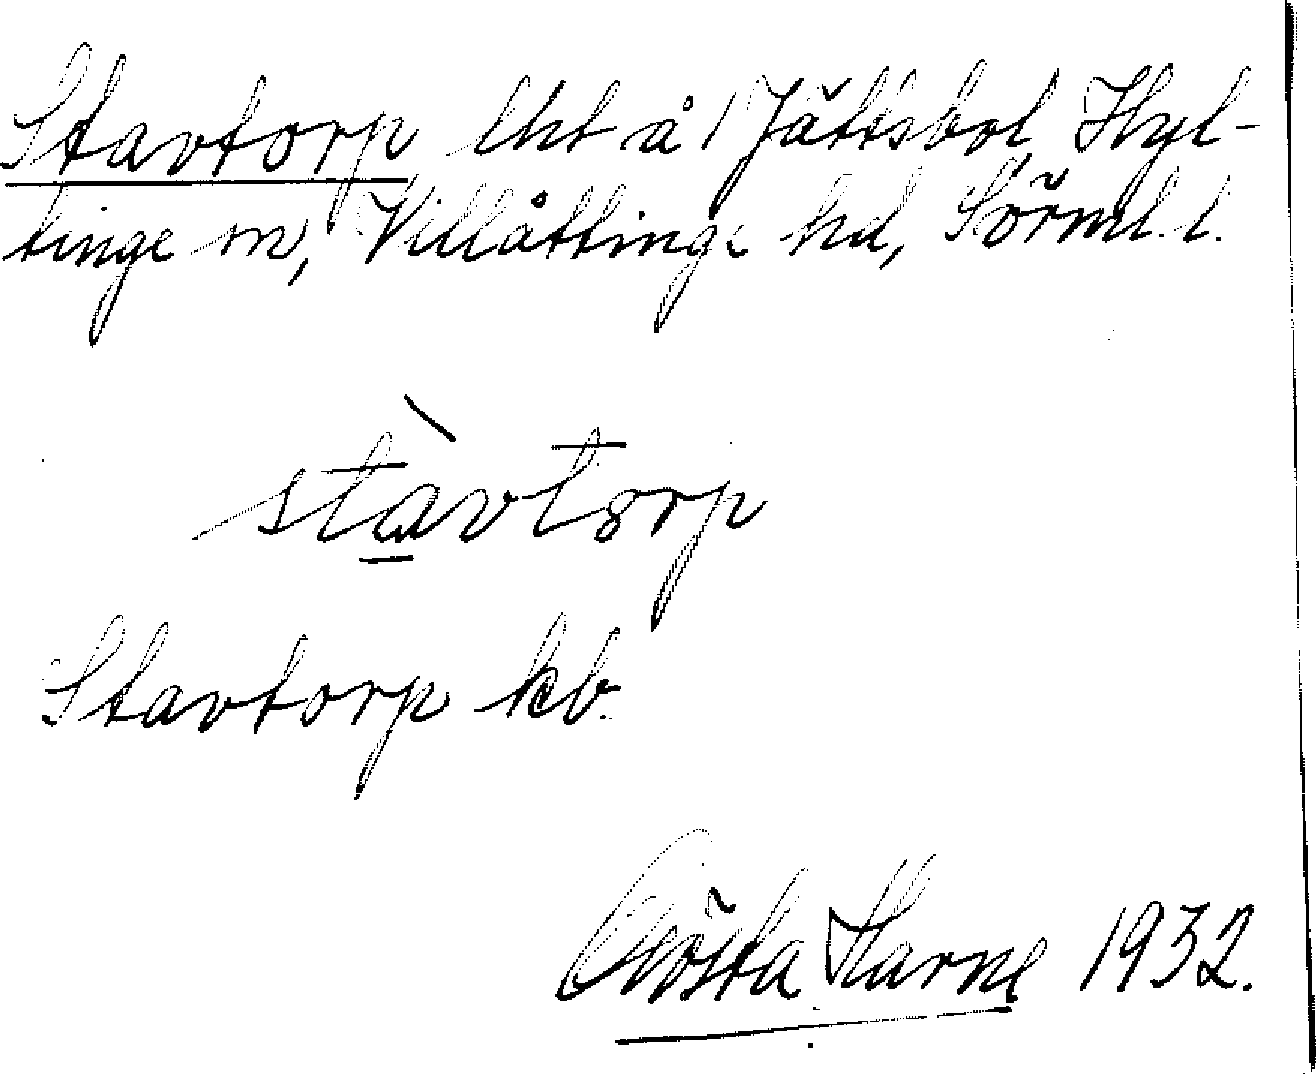 Stavtorp lht å 1 Jättsbol Hyl-
tinge sn, Villåttinge hd, Sörml. l.
stàvtorp
Stavtorp kb.
Gösta Harne 1932.